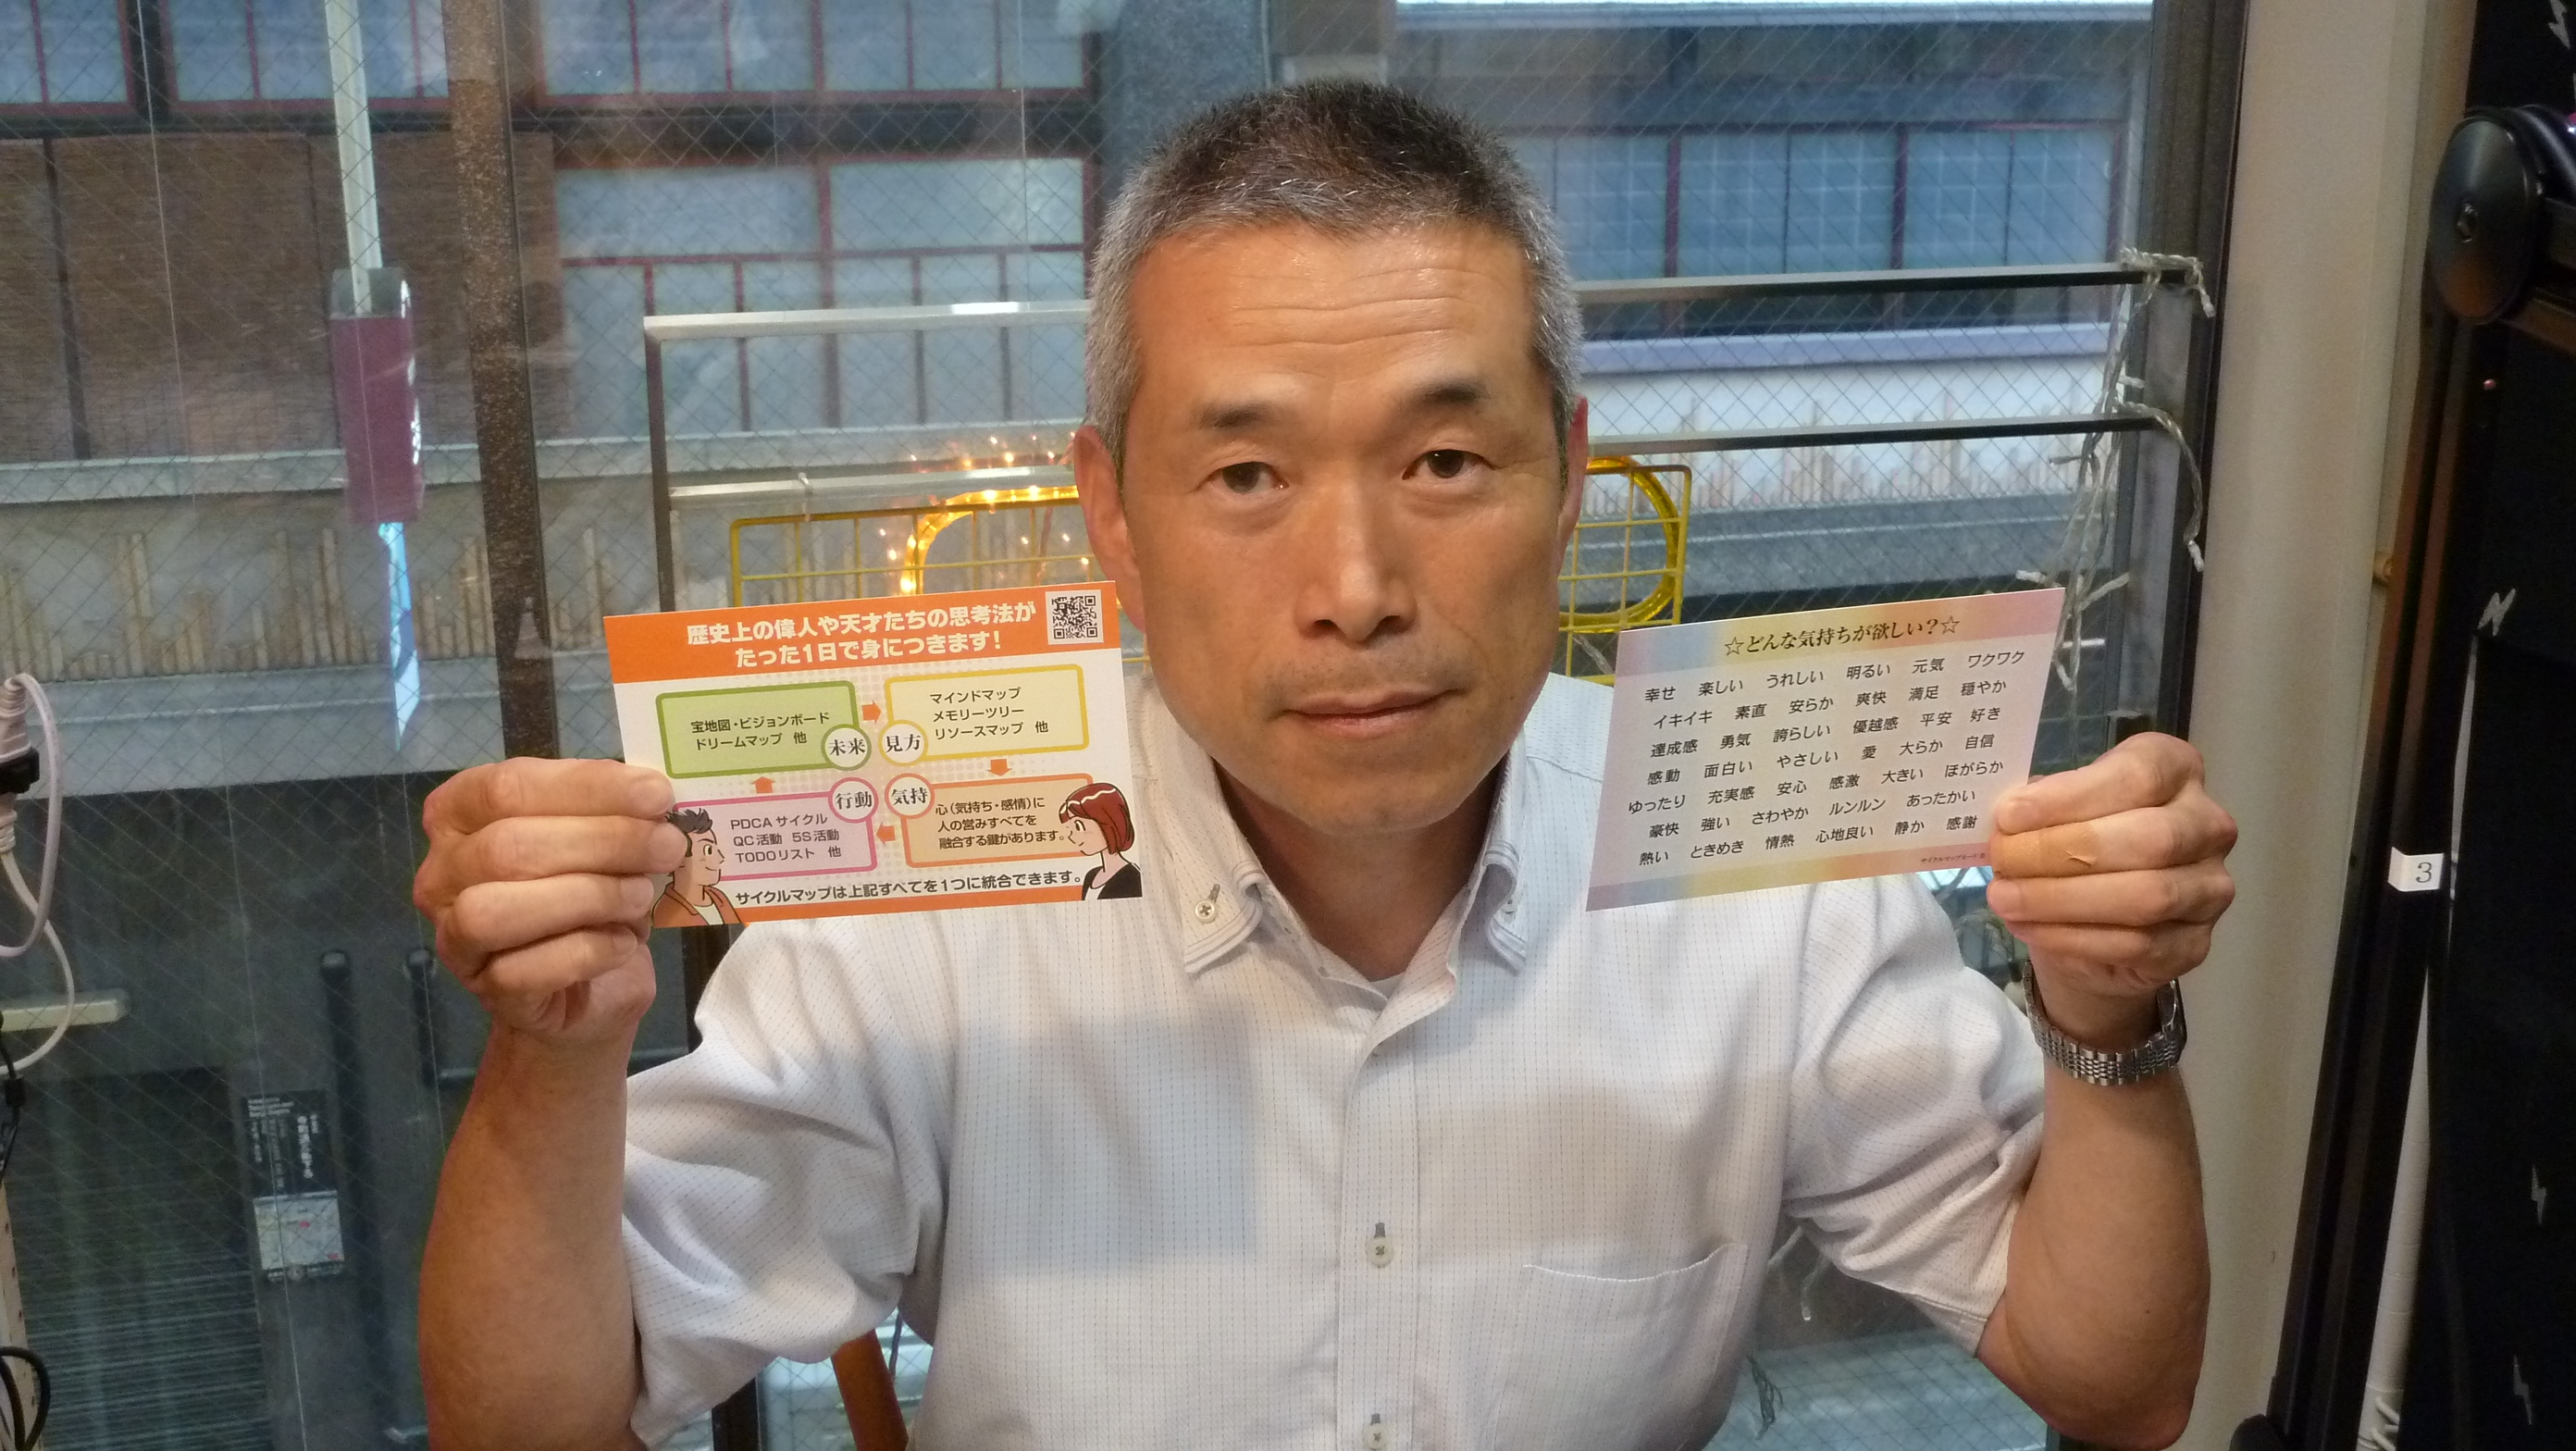 歴史上の偉人や天才たちの思考法が
たった1日で身につきます!
宝地図・ビジョンボード
ドリームマップ 他
未来
マインドマップ
メモリーツリー
リソースマップ 他
見方
行動
PDCAサイクル
QC活動 5S活動
TODOリスト 他
気持
心(気持ち・感情)に
人の営みすべてを
融合する鍵があります。
サイクルマップは上記すべてを1つに統合できます。
☆どんな気持ちが欲しい?☆
幸せ 楽しい うれしい 明るい 元気 ワクワク
イキイキ 素直 安らか 爽快 満足 穏やか
達成感 勇気 誇らしい 優越感 平安 好き
感動 面白い やさしい 愛 大らか 自信
ゆったり 充実感 安心 感激 大きい ほがらか
豪快 強い さわやか ルンルン あったかい
熱い ときめき 情熱 心地良い 静か 感謝
3